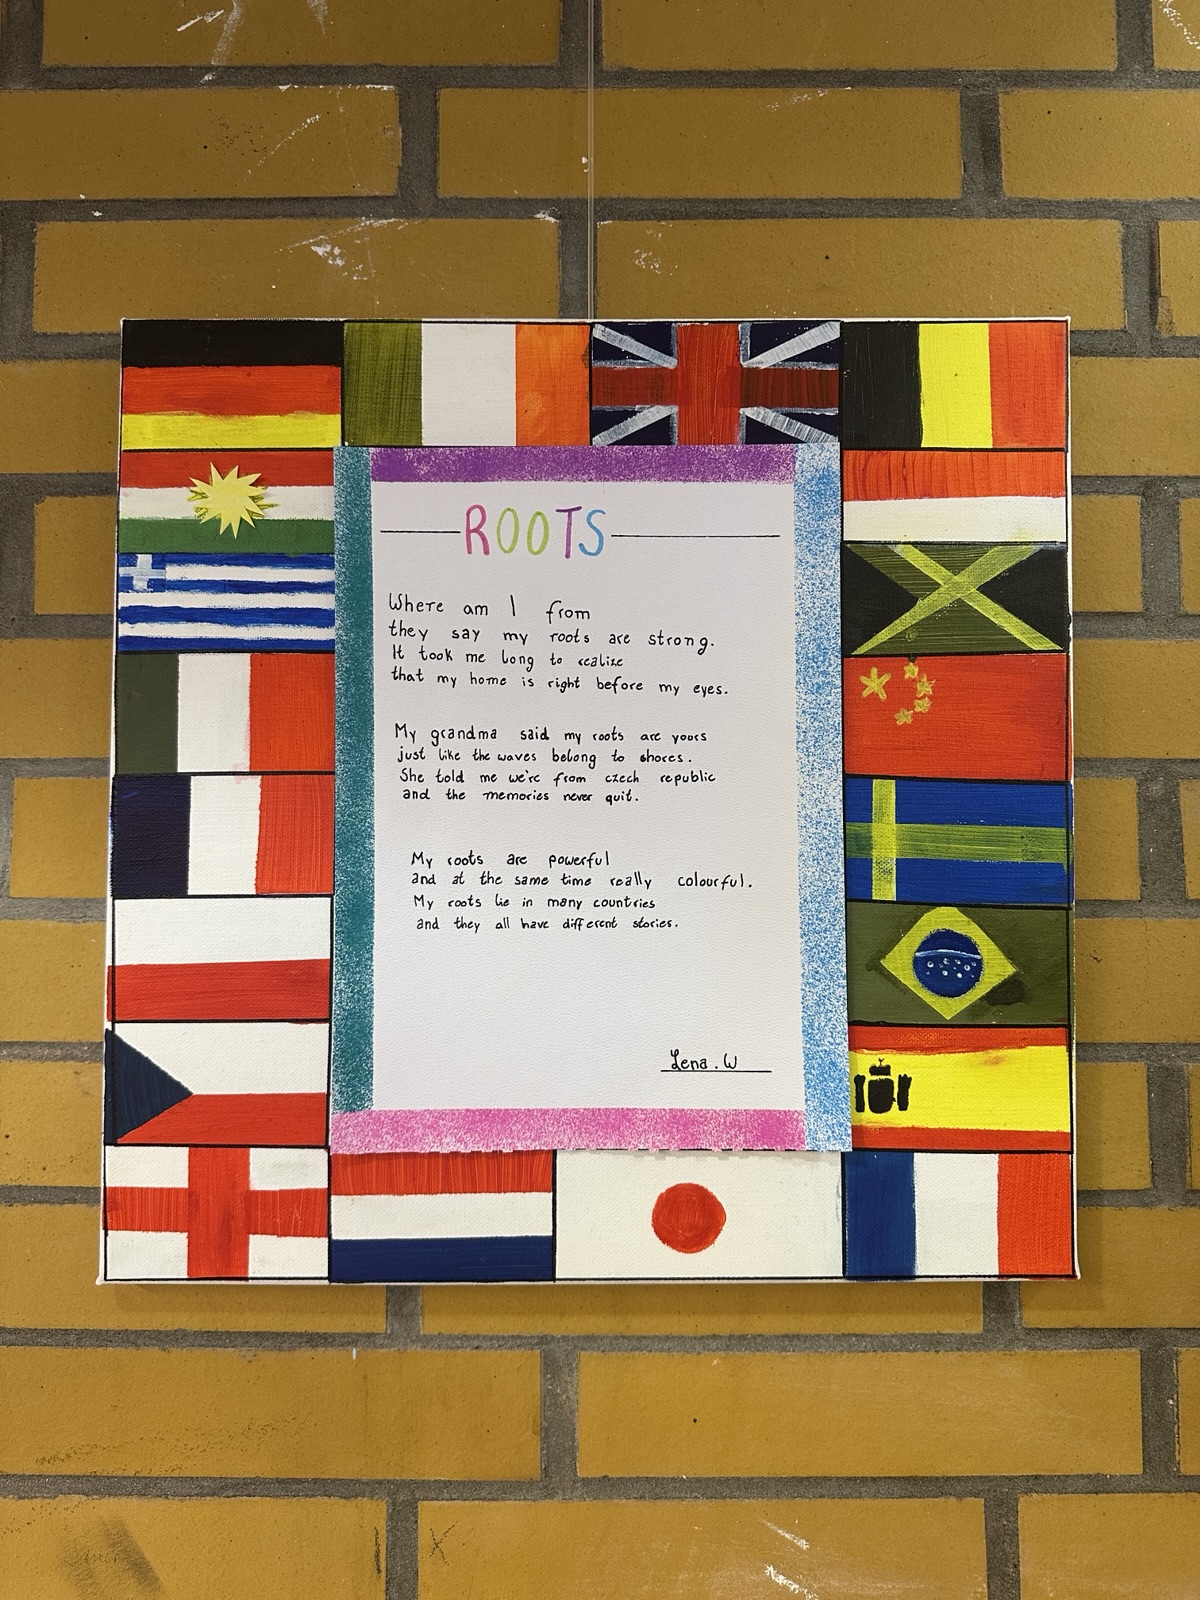 ROOTS
Where am I from
they say my roots are strong.
It took me long to realize
that my home is right before my eyes.
My grandma said my roots are yours
just like the waves belong to shores.
She told me we're from czech republic
and the memories never quit.
My roots are powerful
and at the same time really colourful.
My roots lie in many countries
and they all have different stories.
Lena. W